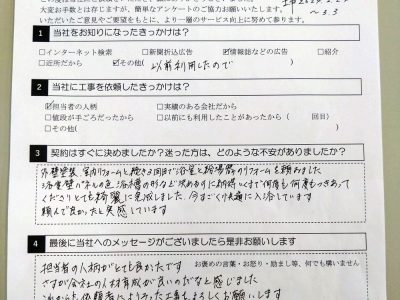 大変お手数とは存じますが、簡単なアンケートのご協力お願いいたします。
いただいたご意見やご要望をもとに、より一層のサービス向上に努めて参ります。
~3.3
1 当社をお知りになったきっかけは?
□インターネット検索 □新聞折込広告 ☑情報誌などの広告 □紹介
□近所だから ☑その他( 以前利用したので )
2 当社に工事を依頼したきっかけは?
☑担当者の人柄 □実績のある会社だから
□値段が手ごろだったから □以前にも利用したことがあったから( 回目)
□その他( )
3 契約はすぐに決めましたか?迷った方は、どのような不安がありましたか?
外壁塗装、室内リフォームと続き3回目で浴室と給湯器のリフォームを頼みました
浴室壁パネルの色 浴槽の形など決めるのに納得いくまで何度も何度もつきあって
くださりとても綺麗に完成しました、今まごくり快適に入浴しています
頼んで良かったと実感しています
4 最後に当社へのメッセージがございましたら是非お願いします
お褒めの言葉・お怒り・励まし等、何でも構いません
担当者の人柄がとても良かったです
さすが会社の人材育成が良いのだなと感じました
これからも依頼者によりそった工事をよろしくお願いします